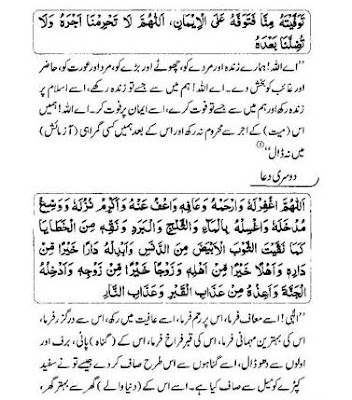 تَوَفَّيْتَهُ مِنَّا فَتَوَفَّهُ عَلَى الْاِيْمَانِ، اَللّٰهُمَّ لَا تَحْرِمْنَا اَجْرَهُ وَلَا
تُضِلَّنَا بَعْدَهُ
”اے اللہ! ہمارے زندہ اور مردے کو، چھوٹے اور بڑے کو، مرد اور عورت کو، حاضر
اور غائب کو بخش دے۔ اے اللہ! ہم میں سے جسے تو زندہ رکھے، اسے اسلام پر
زندہ رکھ اور ہم میں سے جسے تو فوت کرے، اسے ایمان پر فوت کر۔ اے اللہ! ہمیں
اس (میت) کے اجر سے محروم نہ رکھ اور اس کے بعد ہمیں کسی گمراہی (آزمائش)
میں نہ ڈال“①
دوسری دعا
اَللّٰهُمَّ اغْفِرْلَهُ وَارْحَمْهُ وَعَافِهِ وَاعْفُ عَنْهُ وَاَكْرِمْ نُزُلَهُ وَوَسِّعْ
مُدْخَلَهُ وَاغْسِلْهُ بِالْمَاءِ وَالثَّلْجِ وَالْبَرَدِ وَنَقِّهِ مِنَ الْخَطَايَا
كَمَا نَقَّيْتَ الثَّوْبَ الْاَبْيَضَ مِنَ الدَّنَسِ وَاَبْدِلْهُ دَارًا خَيْرًا مِّنْ
دَارِهِ وَاَهْلًا خَيْرًا مِّنْ اَهْلِهِ وَزَوْجًا خَيْرًا مِّنْ زَوْجِهِ وَاَدْخِلْهُ
الْجَنَّةَ وَاَعِذْهُ مِنْ عَذَابِ الْقَبْرِ وَعَذَابِ النَّارِ
”الٰہی! اسے معاف فرما، اس پر رحم فرما، اسے عافیت میں رکھ، اس سے درگزر فرما،
اس کی بہترین مہمانی فرما، اس کی قبر فراخ فرما، اس کے (گناہ) پانی، برف اور
اولوں سے دھو ڈال، اسے گناہوں سے اس طرح صاف کر دے جیسے تو نے سفید
کپڑے کو میل سے صاف کیا ہے۔ اسے اس کے (دنیا والے) گھر سے بہتر گھر،